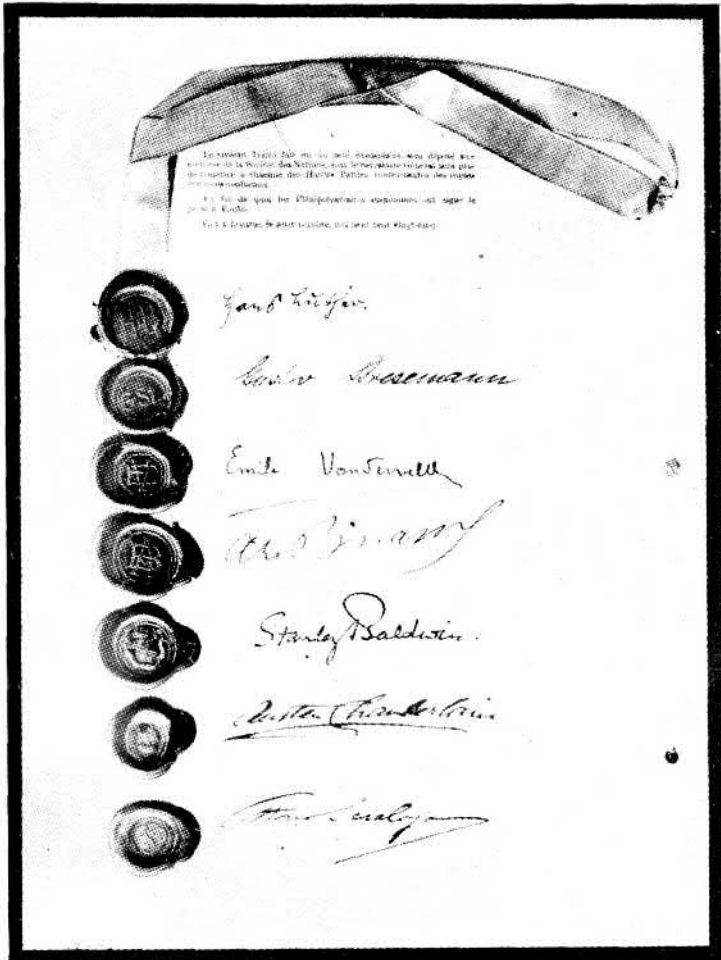 Le présent Traité fait en un seul exemplaire, sera déposé aux
archives de la Société des Nations, dont le Secrétaire Général sera prié
de remettre à chacune des Hautes Parties contractantes des copies
conformes.
En foi de quoi les Plénipotentiaires
Fait à Locarno, le seize octobre, mil neuf cent vingt-cinq.
Hans Luther.
Gustav Stresemann
Emile Vandervelde
Ari Briand
Stanley Baldwin.
Austen Chamberlain
Vittorio Scialoja